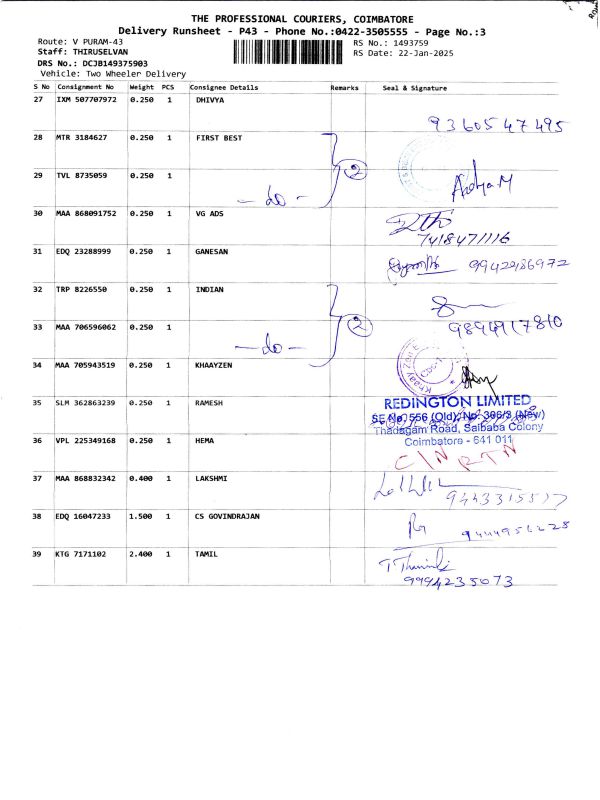 THE PROFESSIONAL COURIERS, COIMBATORE
Delivery Runsheet - P43 - Phone No.:0422-3505555 - Page No.:3
Route: V PURAM-43
RS No.: 1493759
Staff: THIRUSELVAN
RS Date: 22-Jan-2025
DRS No.: DCJB149375903
Vehicle: Two Wheeler Delivery
S No Consignment No Weight PCS Consignee Details Remarks Seal & Signature
27 IXM 507707972 0.250 1 DHIVYA
9360547495
28 MTR 3184627 0.250 1 FIRST BEST
2
29 TVL 8735059 0.250 1
- do -
30 MAA 868091752 0.250 1 VG ADS
7418471116
31 EDQ 23288999 0.250 1 GANESAN
9942286972
32 TRP 8226550 0.250 1 INDIAN
2
33 MAA 706596062 0.250 1
- do -
34 MAA 705943519 0.250 1 KHAAYZEN
35 SLM 362863239 0.250 1 RAMESH
REDINGTON LIMITED
SF No. 556 (Old), No. 306/3 (New)
Thadagam Road, Saibaba Colony
Coimbatore - 641 011
36 VPL 225349168 0.250 1 HEMA
C/N RTN
37 MAA 868832342 0.400 1 LAKSHMI
38 EDQ 16047233 1.500 1 CS GOVINDRAJAN
39 KTG 7171102 2.400 1 TAMIL
9994235073